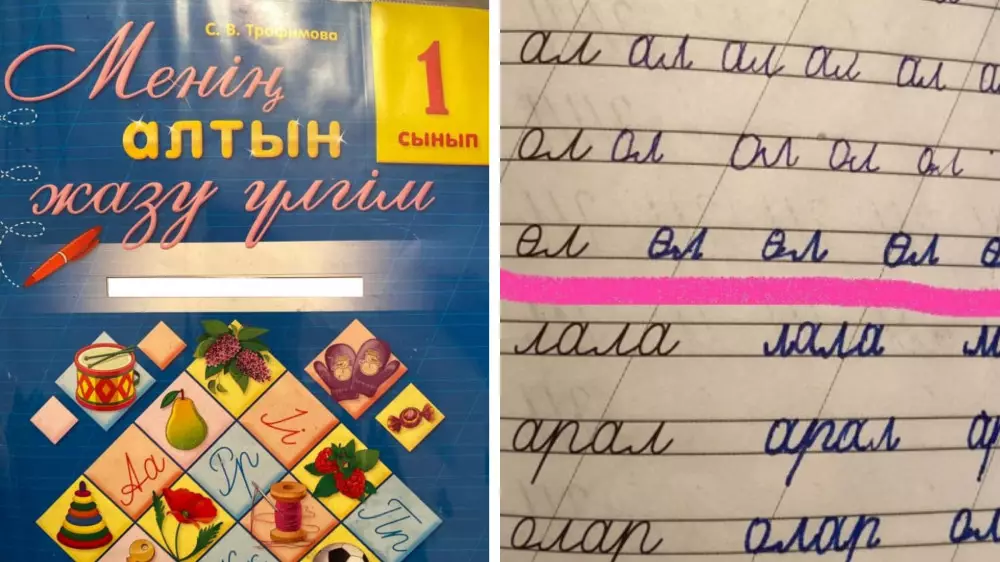 С. В. Трофимова
Менің
алтын
жазу үлгім
1
сынып
Іі
Аа
Рр
Пп
ал ал ал ал ал
ол ол ол ол ол
өл өл өл өл
лала лала
арал арал
олар олар